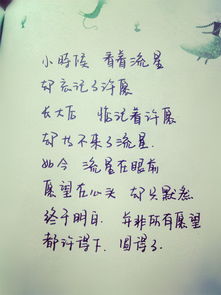 小时候 看着流星
却忘记了许愿
长大后 惦记着许愿
却找不来了流星.
如今 流星在眼前
愿望在心头 却只默然
终于明白. 并非所有愿望
都许得下. 圆得了.